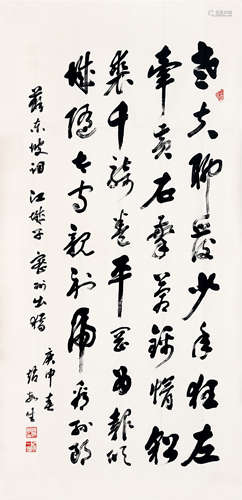 老夫聊發少年狂左
牽黃右擎蒼錦帽貂
裘千騎卷平岡為報傾
城隨太守親射虎看孫郎
蘇東坡詞江城子密州出獵
庚申春